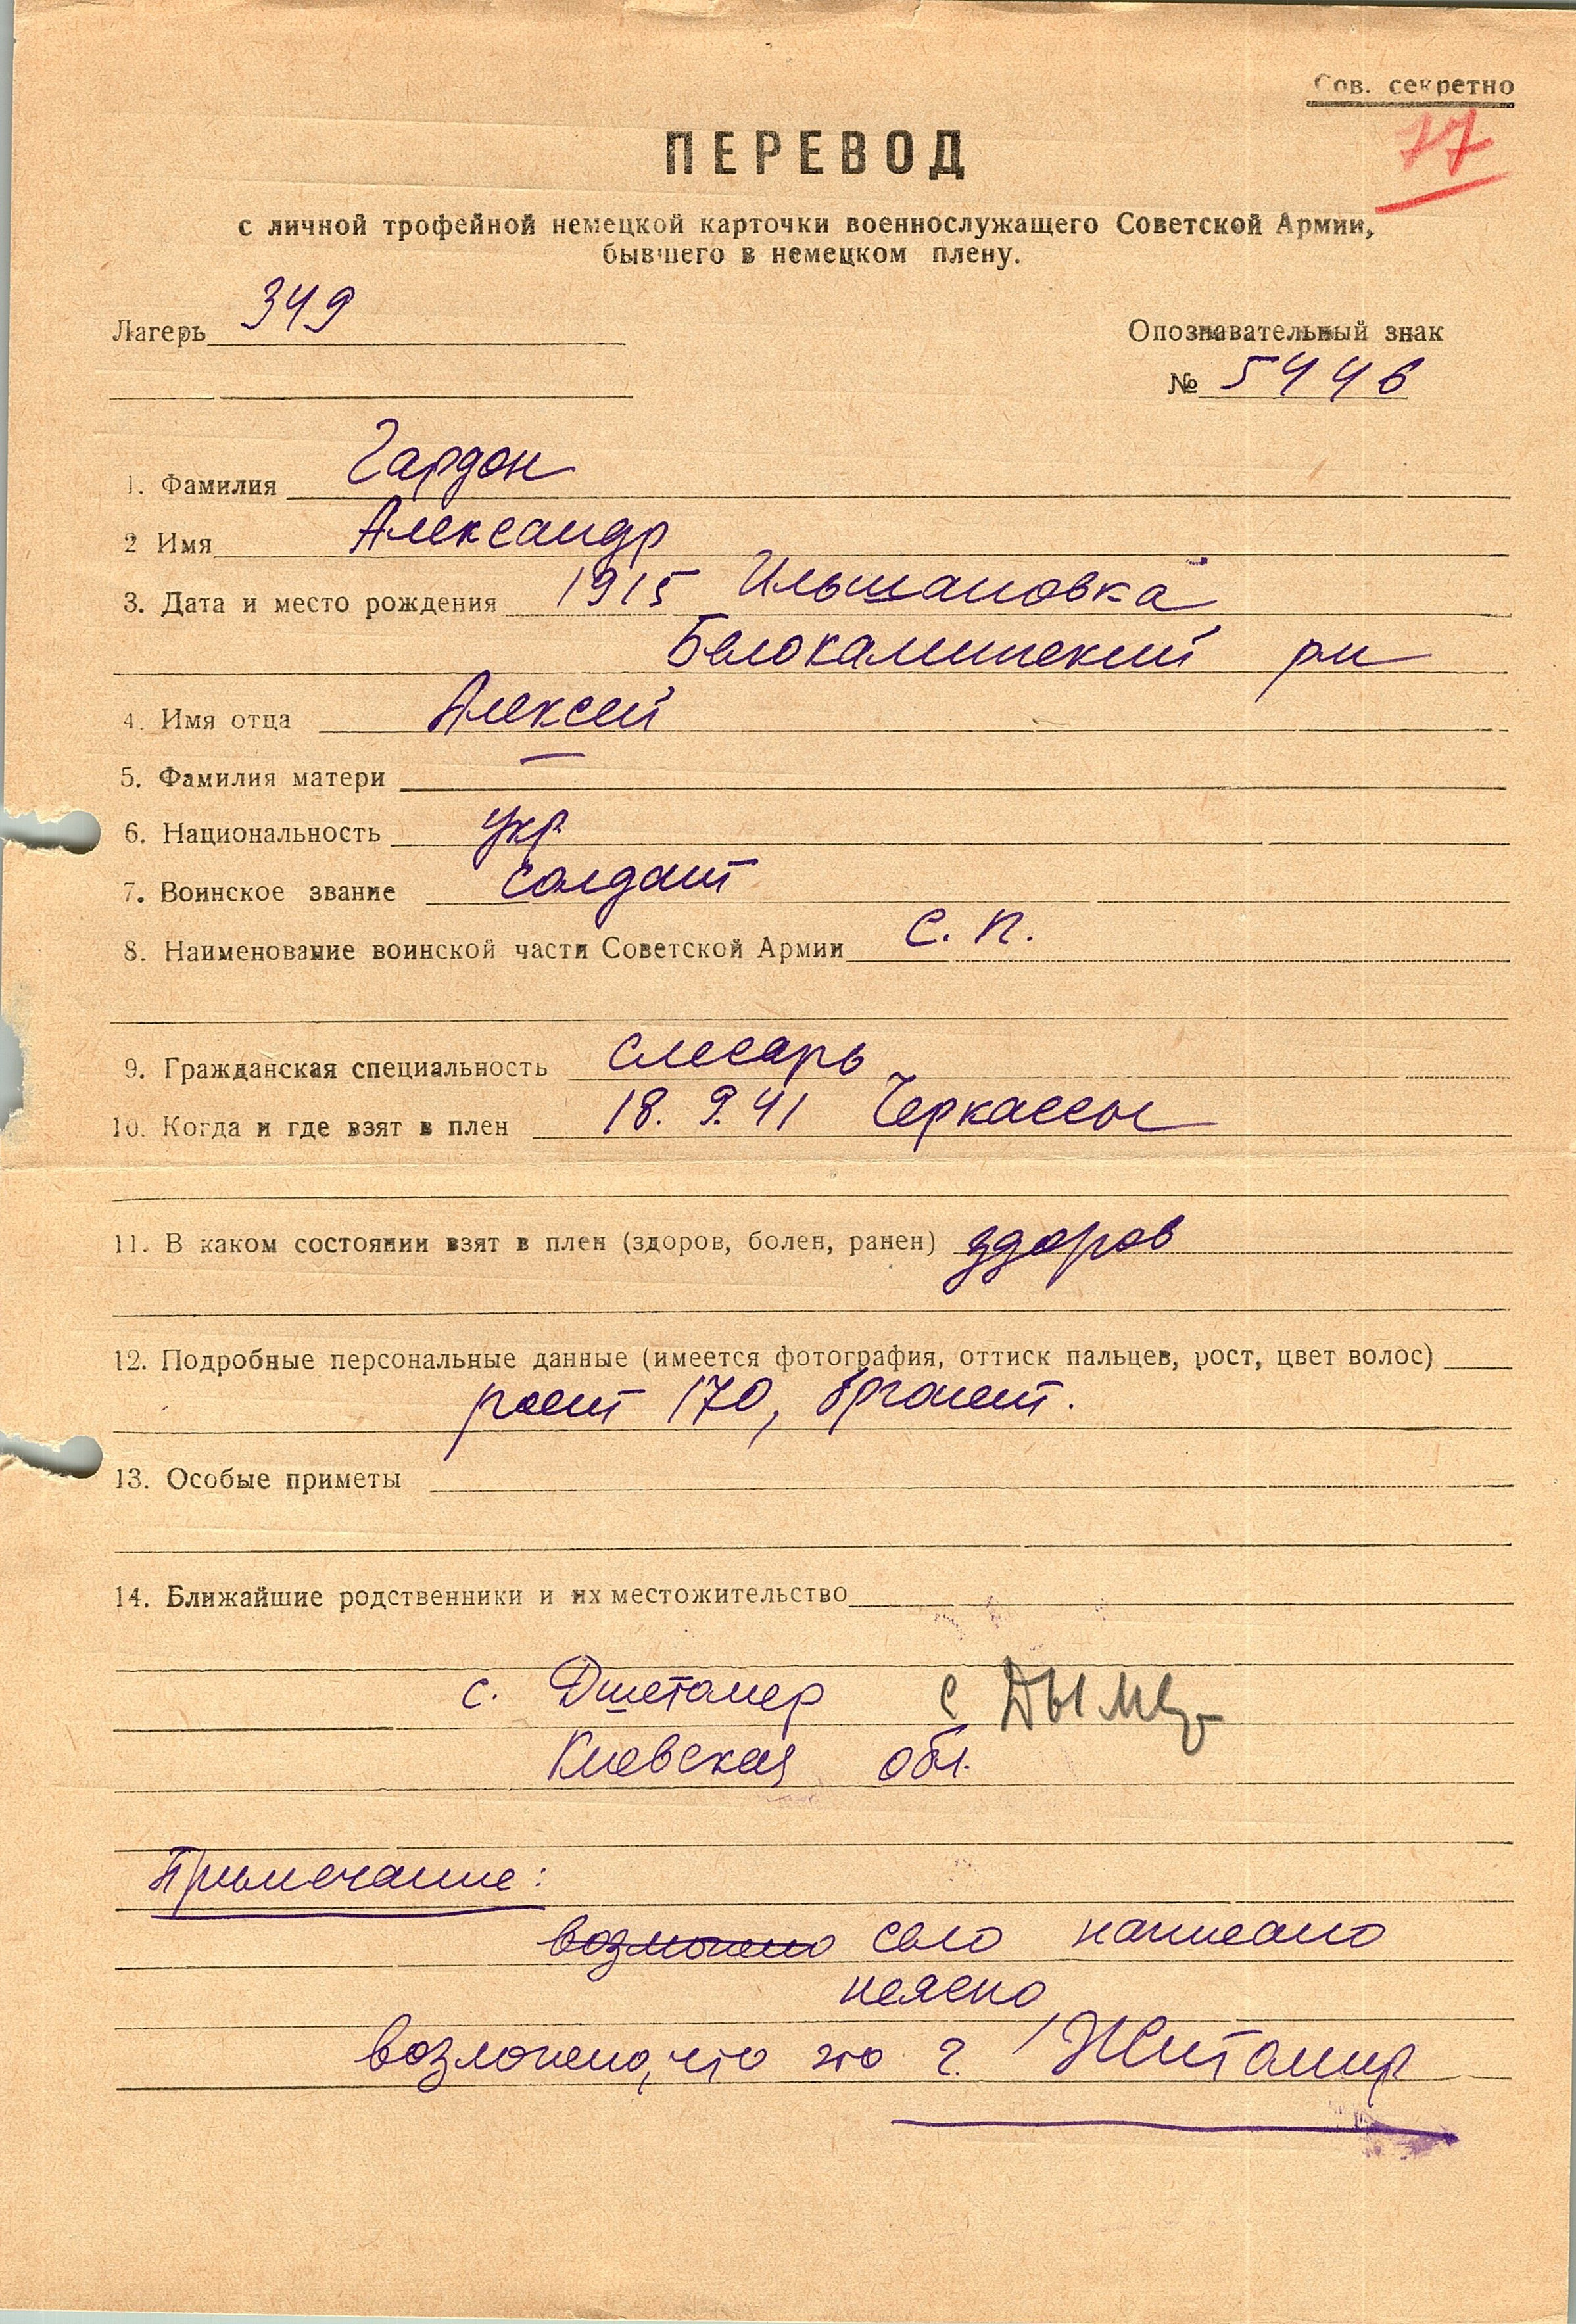 Сов. секретно
77
ПЕРЕВОД
с личной трофейной немецкой карточки военнослужащего Советской Армии,
бывшего в немецком плену.
Лагерь 349
Опознавательный знак
№ 5446
1. Фамилия Гардон
2 Имя Александр
3. Дата и место рождения 1915 Ильшановка
Белокаминский рн
4. Имя отца Алексей
5. Фамилия матери —
6. Национальность укр
7. Воинское звание солдат
8. Наименование воинской части Советской Армии С. п.
9. Гражданская специальность слесарь
10. Когда и где взят в плен 18. 9. 41 Черкассы
11. В каком состоянии взят в плен (здоров, болен, ранен) здоров
12. Подробные персональные данные (имеется фотография, оттиск пальцев, рост, цвет волос)
рост 170, брюнет.
13. Особые приметы
14. Ближайшие родственники и их местожительство
с. Дшетомер с Дымер
Киевская обл.
Примечание:
возможно село написано
неясно
возможно, что это г. Житомир